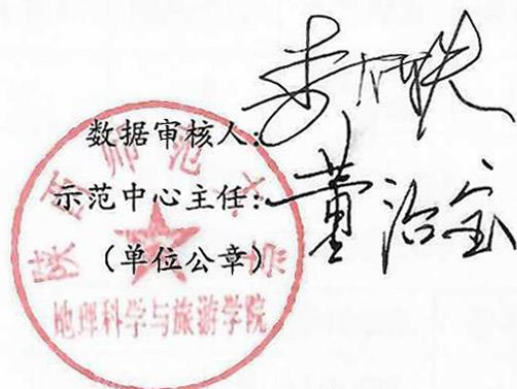 数据审核人:
示范中心主任: 董治宝
(单位公章)
陕西师范大学
地理科学与旅游学院